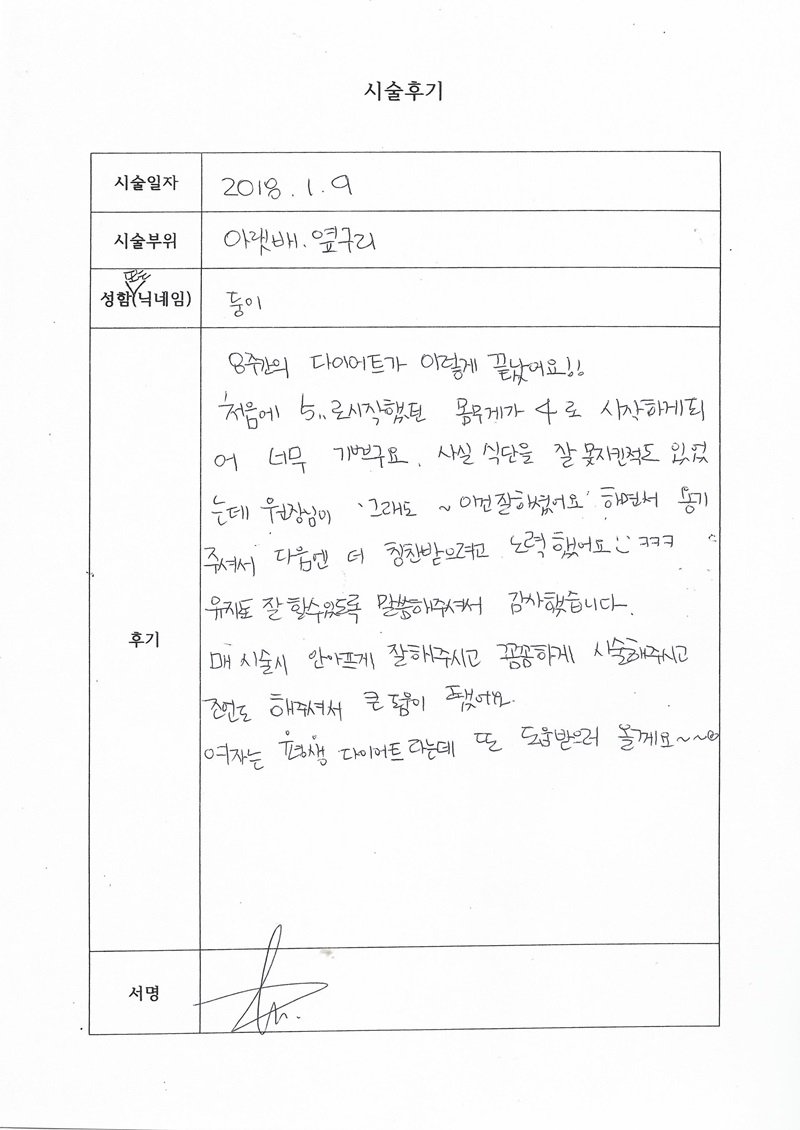 시술후기
시술일자 2018. 1. 9
시술부위 아랫배. 옆구리
또는
성함(닉네임) 둥이
8주간의 다이어트가 이렇게 끝났어요!!
처음에 5..로시작했던 몸무게가 4로 시작하게되
어 너무 기쁘구요. 사실 식단을 잘 못지킨적도 있었
는데 원장님이 '그래도 ~ 이건잘하셨어요' 하면서 용기
주셔서 다음엔 더 칭찬받으려고 노력했어요 ㅋㅋㅋ
유지도 잘 할수있도록 말씀해주셔서 감사했습니다.
후기
매 시술시 안아프게 잘해주시고 꼼꼼하게 시술해주시고
조언도 해주셔서 큰 도움이 됐어요.
여자는 평생 다이어트라는데 또 도움받으러 올께요~~
서명